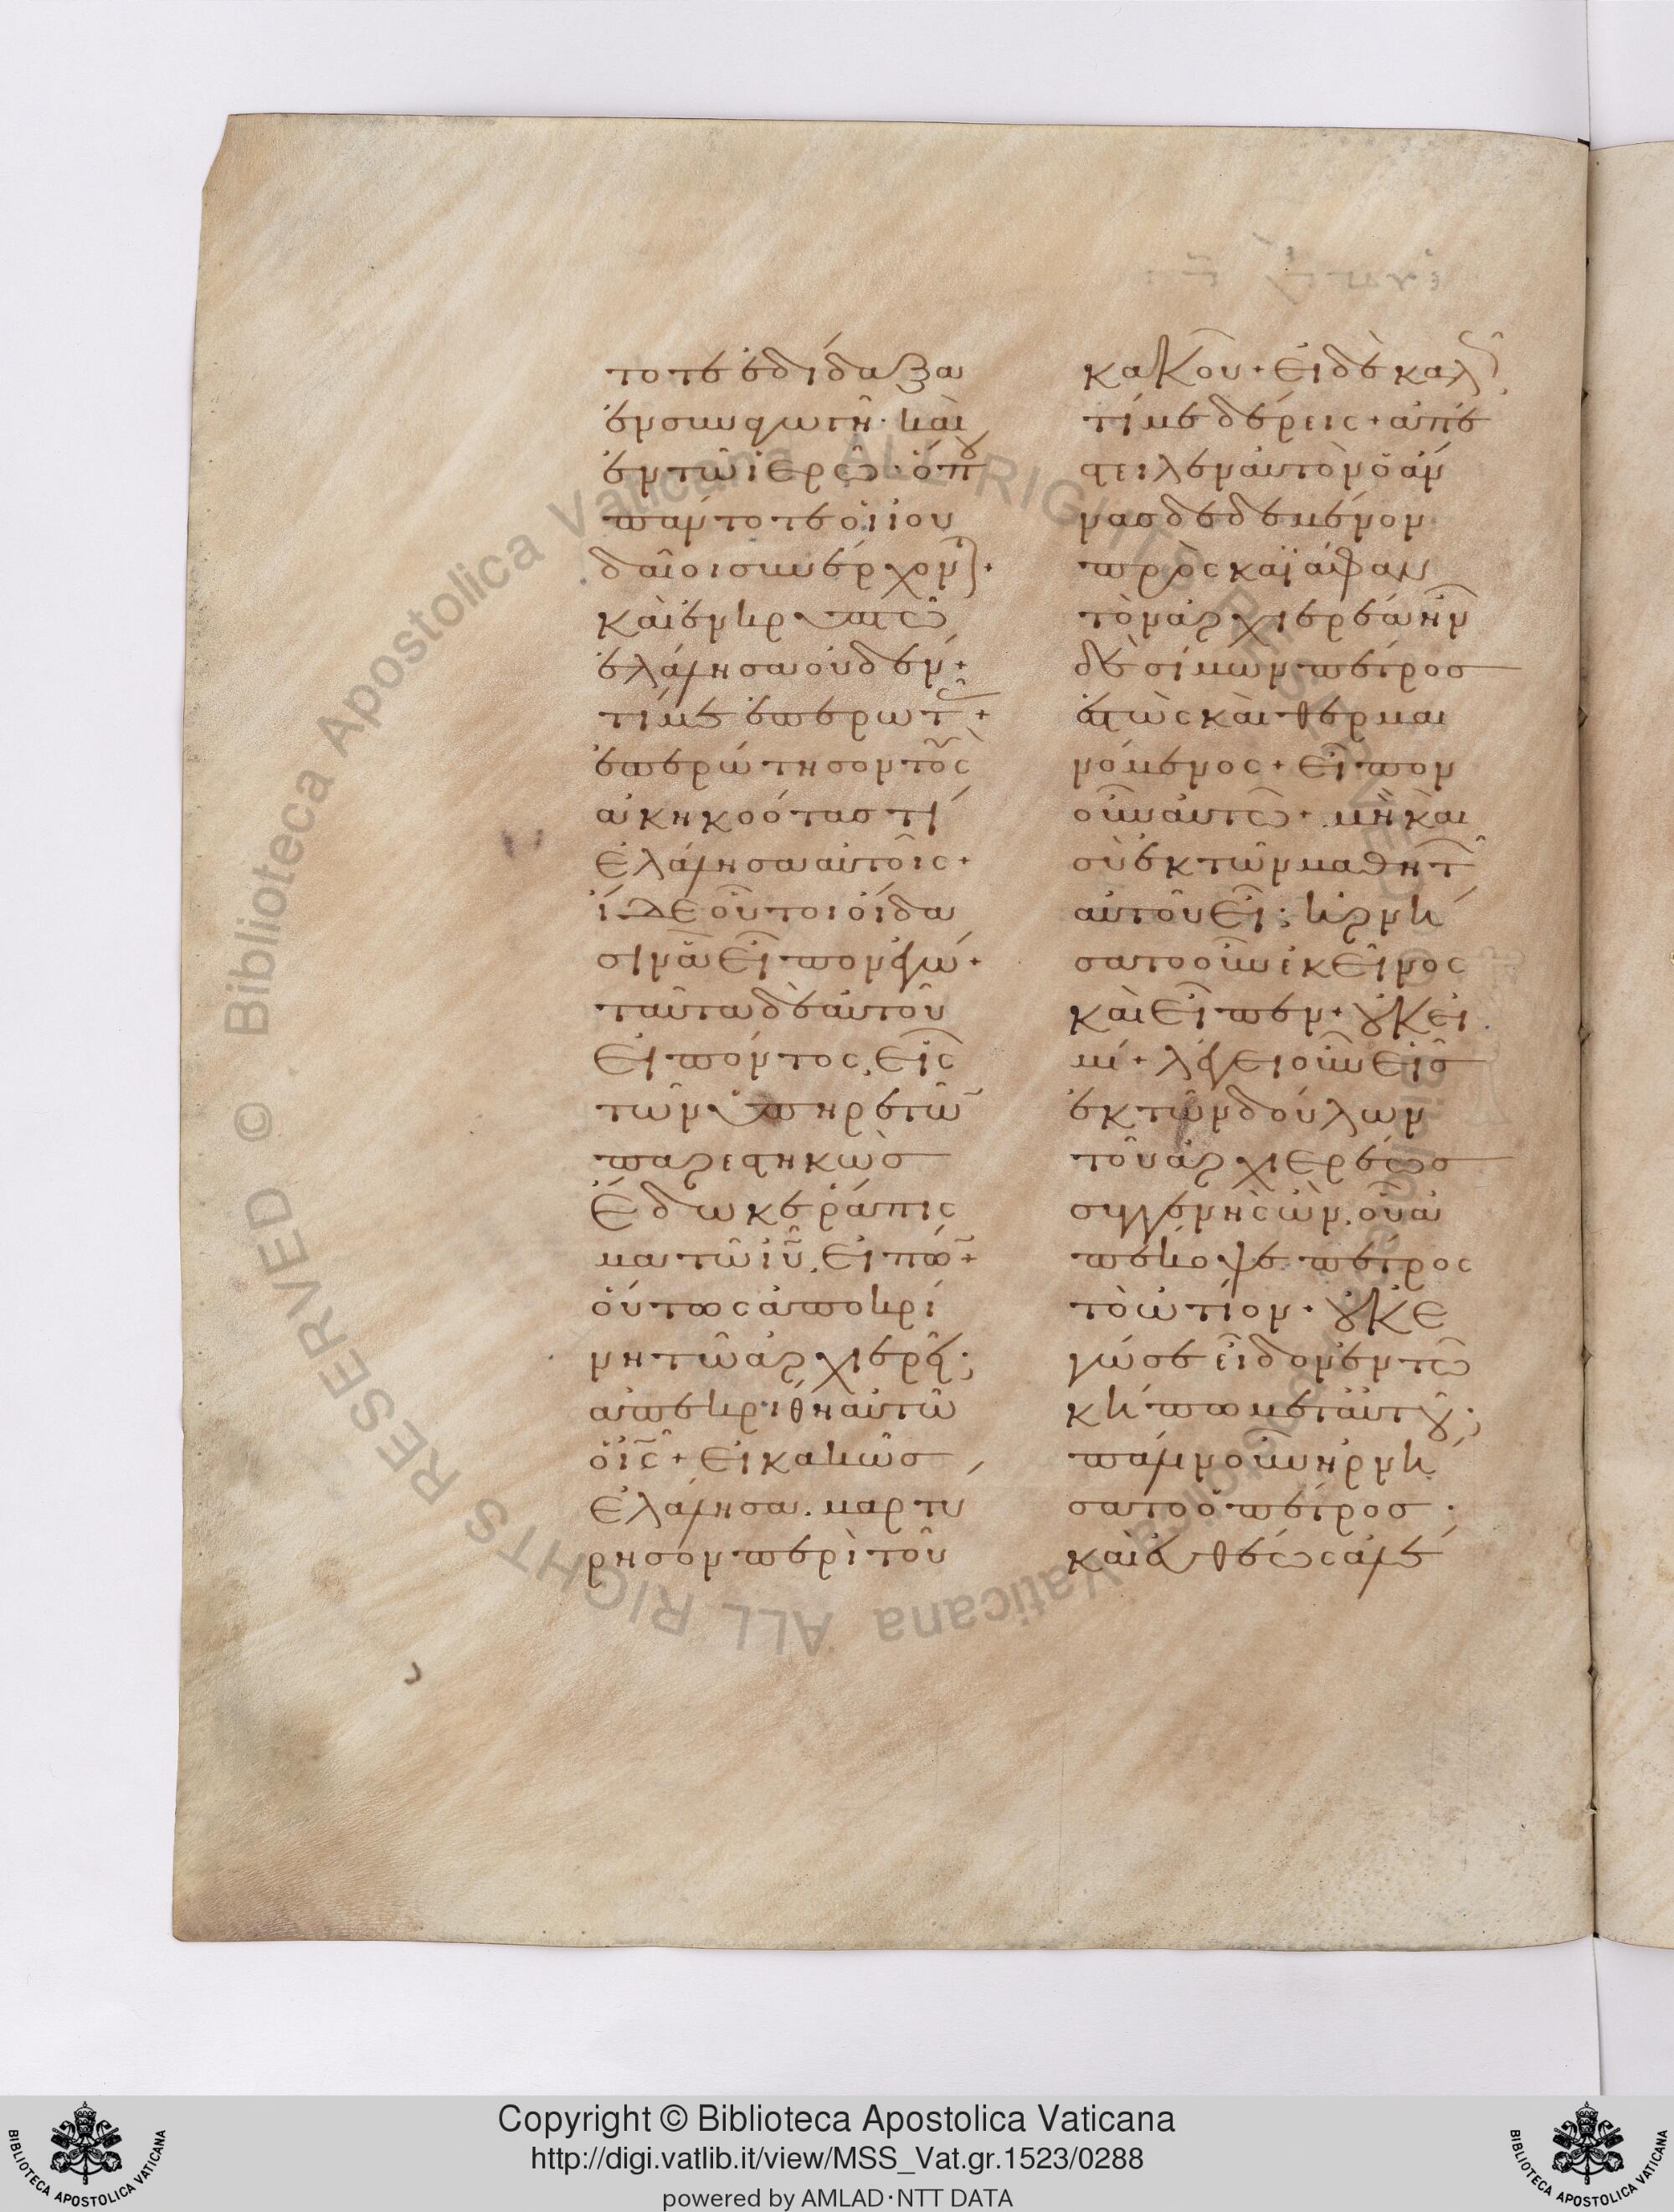 τοτε ἐδίδαξα
ἐν συναγωγῆ· καὶ
ἐν τῶ ἱερῶ· ὅπου
πάντοτε οἱ ἰου
δαῖοι συνέρχοντ(αι)·
καὶ ἐν κρυπτῶ
ἐλάλησα οὐδέν+
τί με ἐπερωτᾶς+
ἐπερώτησον τοὺς
ἀκηκοότας τί
ἐλάλησα αὐτοῖς+
ἴδε οὗτοι οἴδα
σιν ἃ εἶπον ἐγώ+
ταῦτα δὲ αὐτοῦ
εἰπόντος, εἷς
τῶν ὑπηρετῶ̅
παρεστηκὼς
ἔδωκε ῥάπις
μα τῶ ἰῦ, εἰπὼ̅+
οὕτως ἀποκρί
νη τῶ ἀρχιερεῖ;
ἀπεκρίθη αὐτῶ
ὁ ἰς̅+ εἰ κακῶς
ἐλάλησα. μαρτύ
ρησον περὶ τοῦ
κακοῦ+ εἰ δὲ καλῶς
τί με δέρεις+ ἀπέ
στειλεν αὐτὸν ὁ ἄν
νας δεδεμένον
πρὸς καϊάφαν
τὸν ἀρχιερέα ἦν
δὲ σίμων πέτρος
ἑστὼς καὶ θερμαι
νόμενος+ εἶπον
οὖν αὐτῶ+ μὴ καὶ
σὺ ἐκ τῶν μαθητῶν
αὐτοῦ εἶ; ἠρνή
σατο οὖν ἐκεῖνος
καὶ εἶπεν+ οὐκ εἰ
μί+ λέγει οὖν εἷς
ἐκ τῶν δούλων
τοῦ ἀρχιερέως
συγγενὴς ὢν, οὗ ἀ
πέκοψε πέτρος
τὸ ὠτίον· οὐκ ἐ
γώ σε εἶδον ἐν τῶ
κήπω μετ' αὐτοῦ;
πάλιν οὖν ἠρνή
σατο ὁ πέτρος·
καὶ εὐθέως ἀλέ
Copyright © Biblioteca Apostolica Vaticana
http://digi.vatlib.it/view/MSS_Vat.gr.1523/0288
powered by AMLAD·NTT DATA